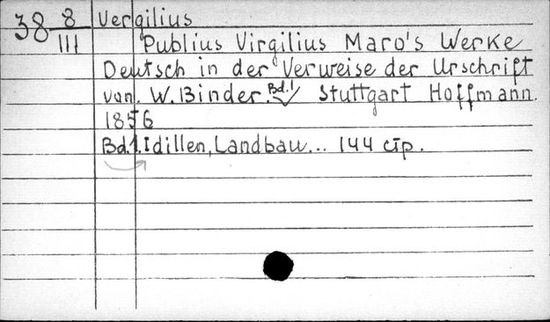 38 8/III Vergilius
Publius Virgilius Maro's Werke
Deutsch in der Verweise der Urschrift
von. W. Binder. Bd.1 Stuttgart Hoffmann.
1856
Bd.1. Idillen, Landbau... 144 стр.